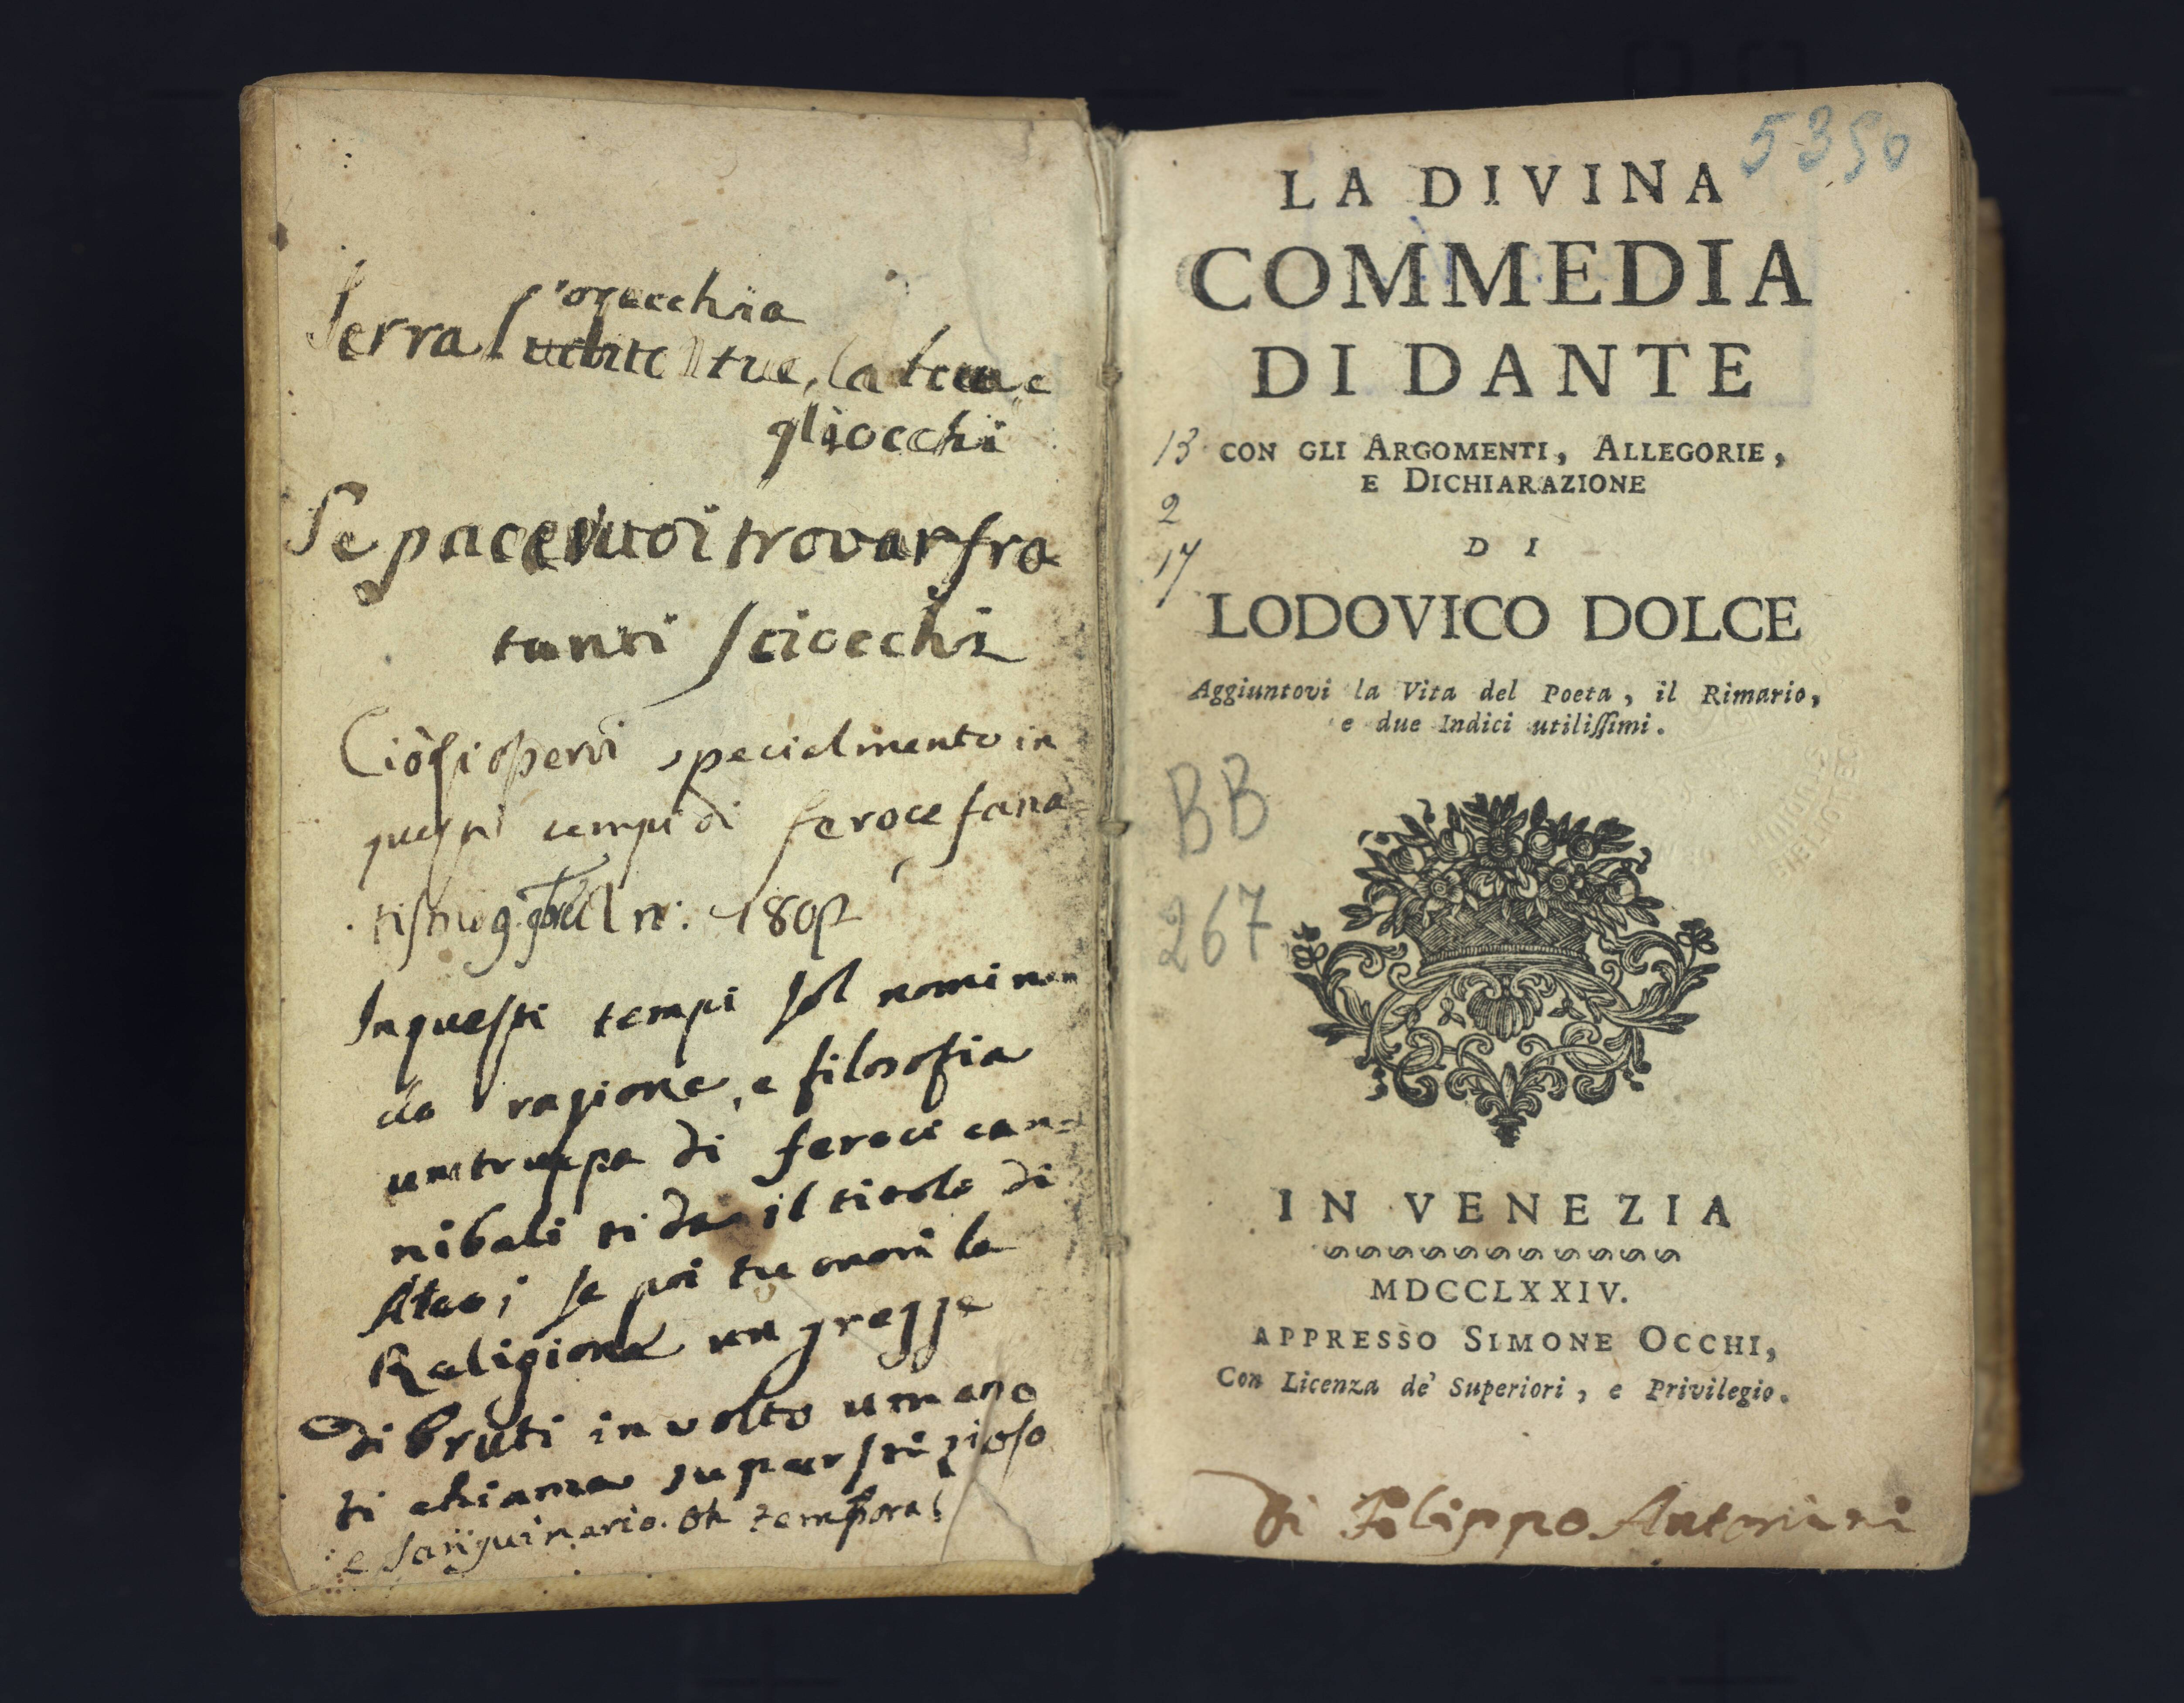 l'orecchia
Serra udito tue, la e
gli occhi
Se pace vuoi trovar fra
tanti sciocchi
Ciò si osservi specialmente in
questi tempi di feroce fana=
tismo
In questi tempi sol nominan
do ragione, e filosofia
una truppa di feroci can=
nibali ti da il titolo di
Ateo; se poi tu onori la
Religione un gregge
di bruti in volto umano
ti chiama superstizioso
e sanguinario. Oh tempora!
5350
LA DIVINA
COMMEDIA
DI DANTE
13 CON GLI ARGOMENTI, ALLEGORIE,
E DICHIARAZIONE
2
DI
17
LODOVICO DOLCE
Aggiuntovi la Vita del Poeta, il Rimario,
e due Indici utilissimi.
BB
267
IN VENEZIA
MDCCLXXIV.
APPRESSO SIMONE OCCHI,
Con Licenza de' Superiori, e Privilegio.
Di Filippo Antonini